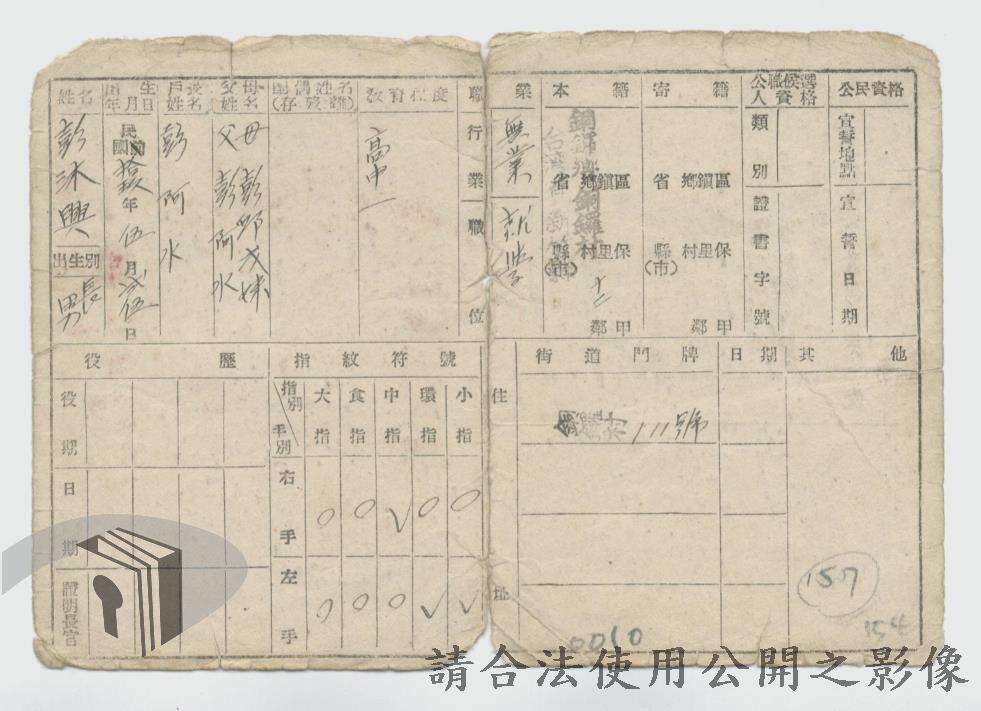 姓名 彭沐興
出生別 長男
出生年月日 民國 年伍月貳伍日
戶長姓名 彭阿水
父母姓名 父 彭阿水 母 彭邱戊妹
配偶姓名(存歿離)
教育程度 高中一
職業 行業 職位 無業 就學
本籍 省 縣(市) 區鎮鄉 保里村 甲鄰 銅鑼鄉銅鑼村 十二
寄籍 省 縣(市) 區鎮鄉 保里村 甲鄰
公職候選人資格 類別 證書字號
公民資格 宣誓地點 宣誓日期
役歷
役期
日期
證明長官
指紋符號
指別 手別 大指 食指 中指 環指 小指
右手 ○ ○ ✓ ○ ○
左手 ○ ○ ○ ✓ ✓
住址
街道門牌 日期 其他
111號
157
154
0010
請合法使用公開之影像